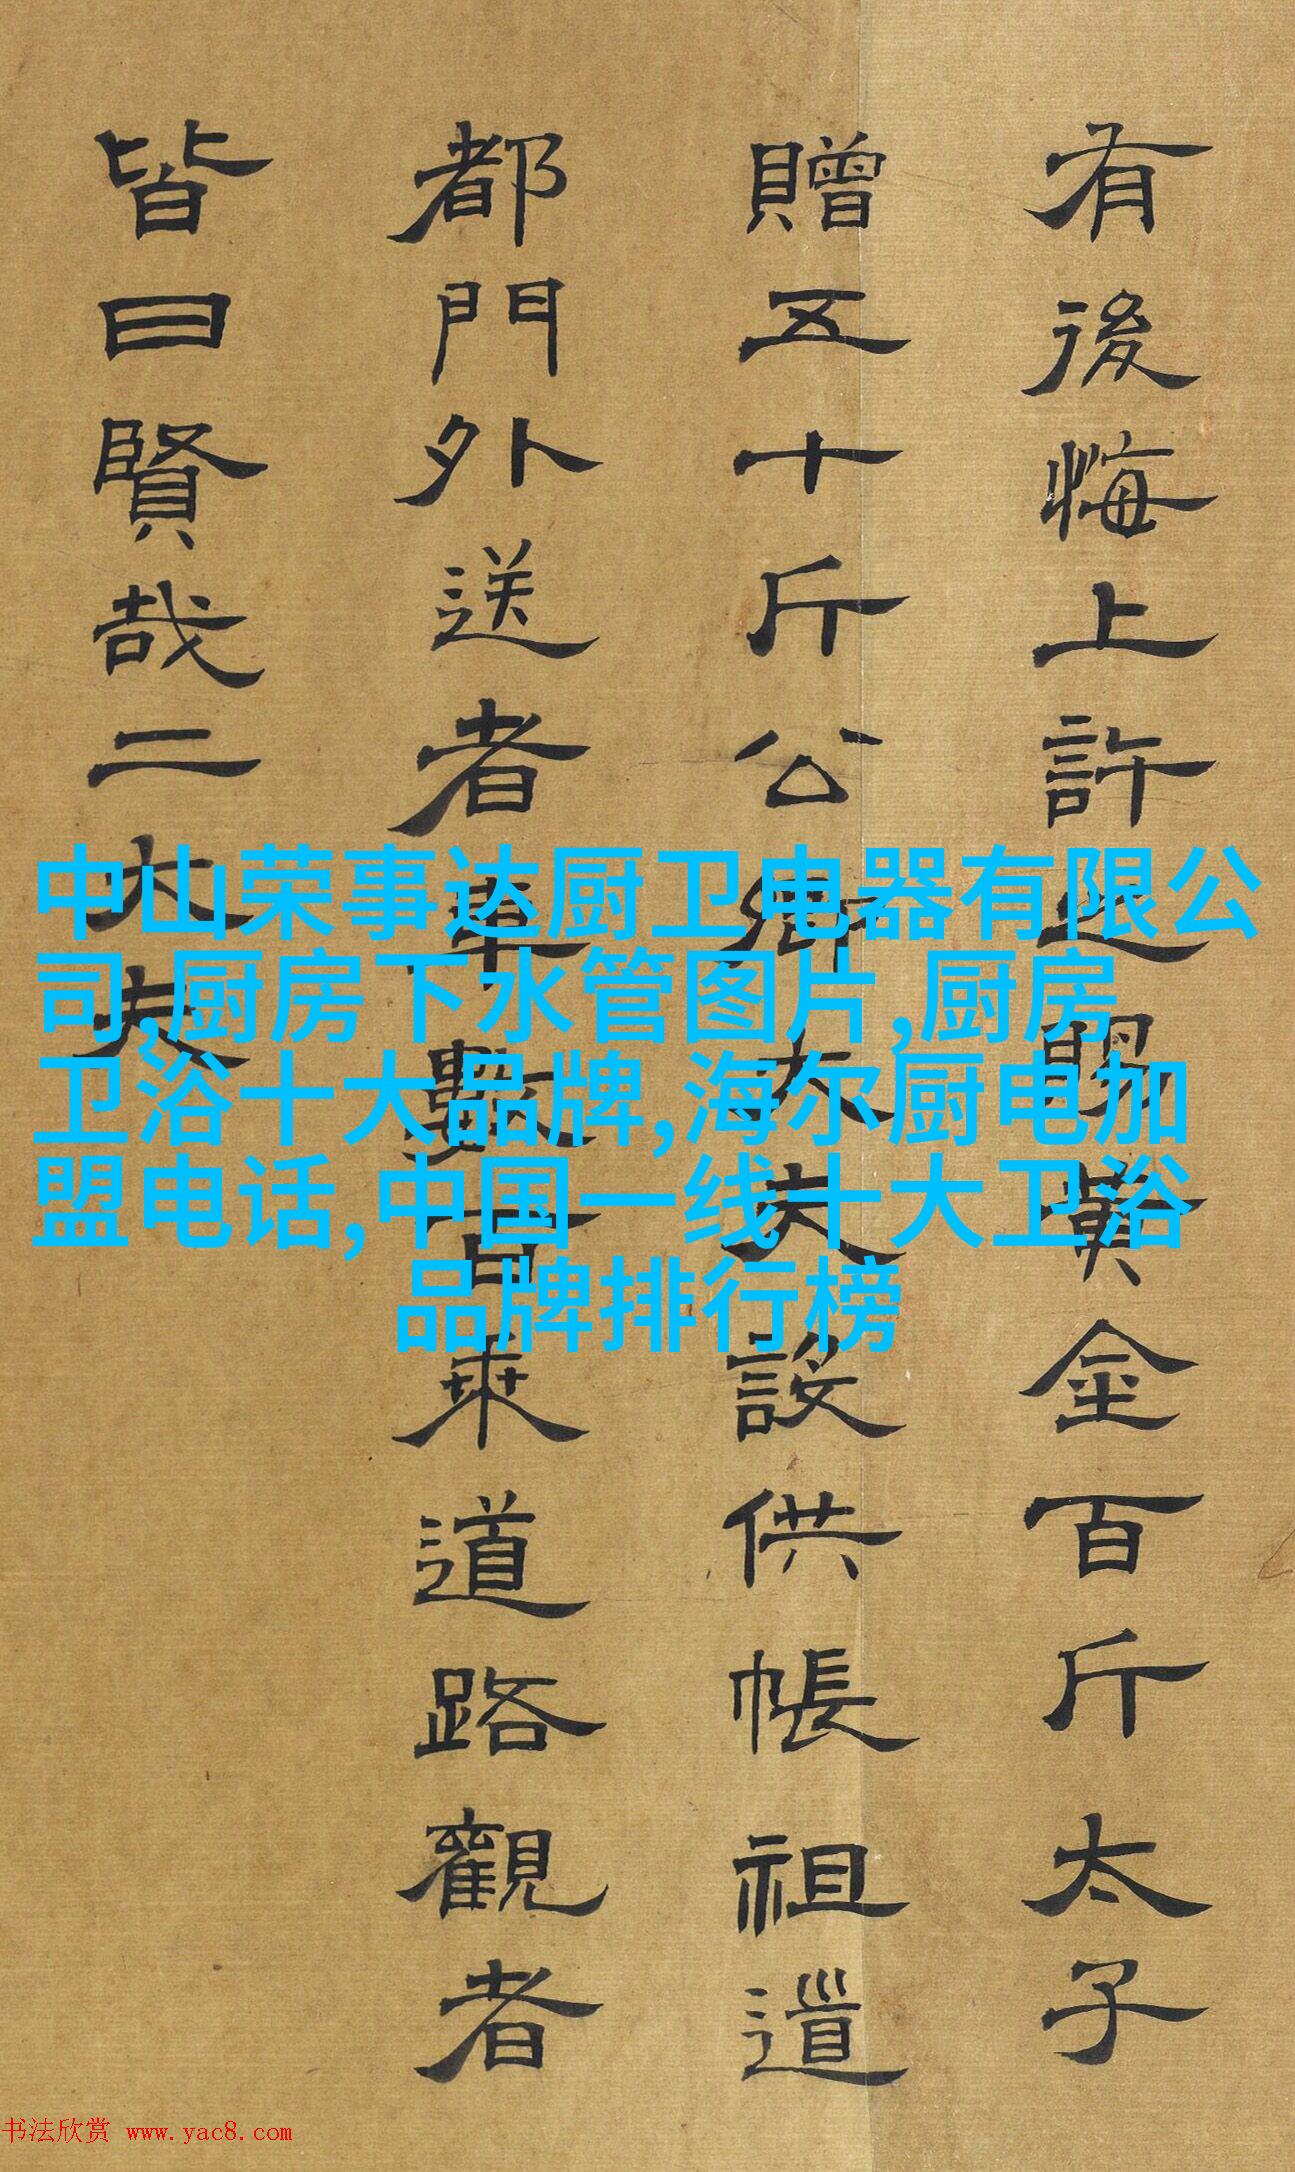 有後悔上許之賜黃金百斤太子
贈五十斤公卿大夫設供帳祖道
都門外送者車數百乘道路觀者
皆曰賢哉二大夫
中山荣事达厨卫电器有限公
司,厨房下水管图片,厨房
卫浴十大品牌,海尔厨电加
盟电话,中国一线十大卫浴
品牌排行榜
书法欣赏 www.yac8.com